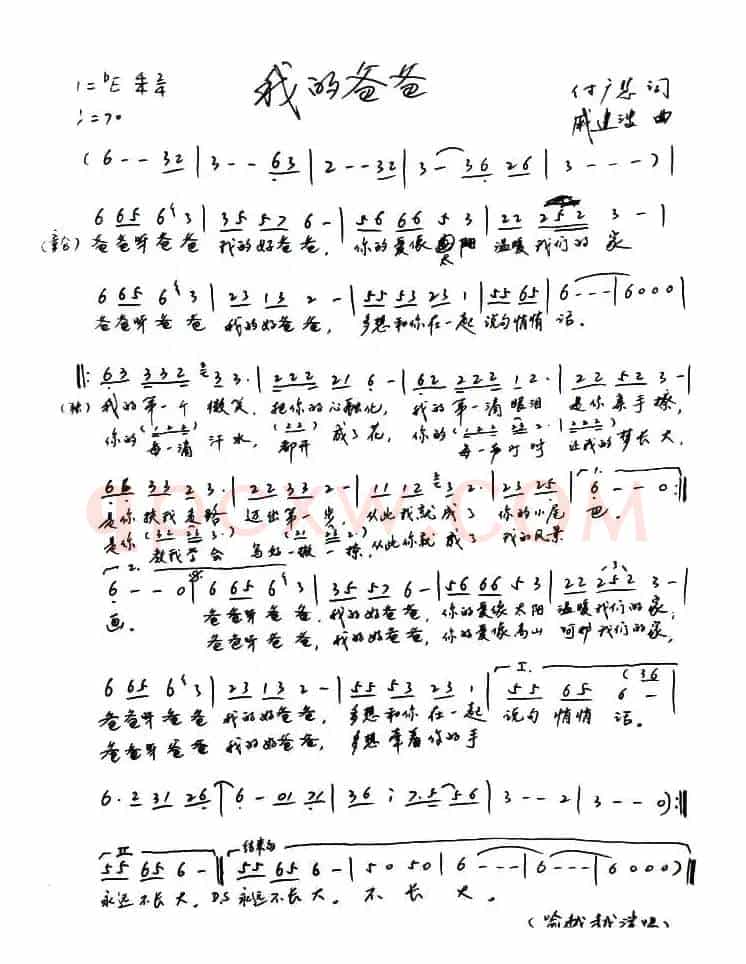 我的爸爸
1=♭E 4/4 2/4
♩=70
付广慧 词
戚建波 曲
(6 - - 32 | 3 - - 63 | 2 - - 32 | 3 - 36 26 | 3 - - - ) |
6 65 6 3 | 35 57 6 - | 56 66 5 3 | 22 252 3 - |
(童合) 爸爸呀爸爸 我的好爸爸, 你的爱像太阳 温暖我们的家
6 65 6 3 | 23 13 2 - | 55 53 23 1 | 55 65 | 6 - - - | 6 0 0 0 |
爸爸呀爸爸 我的好爸爸, 多想和你在一起 说句悄悄话.
||: 63 332 33. | 222 21 6 - | 62 222 12. | 22 52 3 - |
(独) 我的第一个微笑, 把你的心融化, 我的第一滴眼泪 是你亲手擦,
你的每一滴汗水, 都开成了花, 你的每一声叮咛 让我的梦长大,
66 33 23. | 22 33 2 - | 11 12 32. | 23 25 | 6 - - 0 :||
是你扶我走路 迈出第一步, 从此我就成了 你的小尾巴.
是你教我学会 写好一撇一捺, 从此你就成了 我的风景
6 - - 0 | 6 65 6 3 | 35 57 6 - | 56 66 5 3 | 22 252 3 - |
画. 爸爸呀爸爸, 我的好爸爸, 你的爱像太阳 温暖我们的家;
爸爸呀爸爸, 我的好爸爸, 你的爱像高山 呵护我们的家,
6 65 6 3 | 23 13 2 - | 55 53 23 1 | 55 65 6 - (36
爸爸呀爸爸 我的好爸爸, 多想和你在一起 说句悄悄话.
爸爸呀爸爸 我的好爸爸, 多想牵着你的手
6.2 31 26 | 6 - 01 71 | 36 i 7.5 56 | 3 - - 2 | 3 - - 0) :||
II 结束句
55 65 6 - || 55 65 6 - | 50 50 | 6 - - - | 6 - - - | 6 0 0 0 ) ||
永远不长大. D.S 永远不长大. 不 长 大.